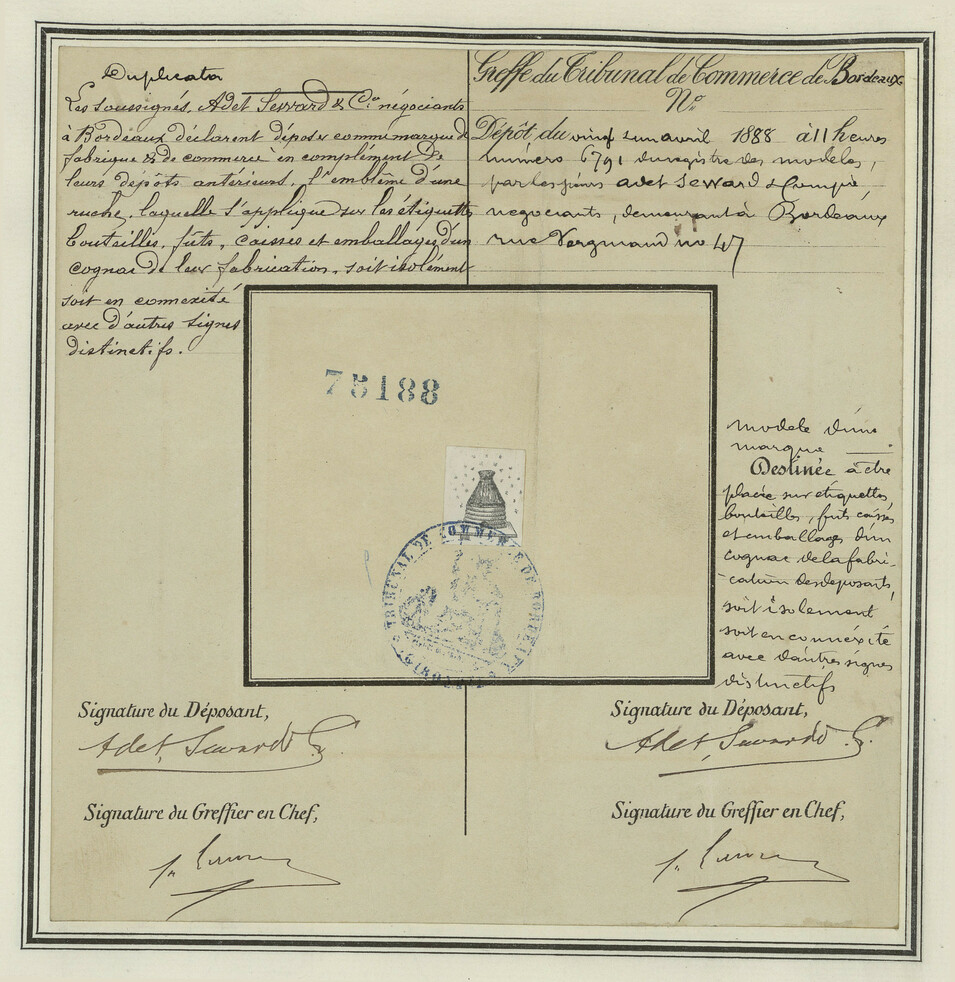 Duplicata
Les soussignés, Adet Seward & Cie négociants
à Bordeaux déclarent déposer comme marque de
fabrique & de commerce en complément de
leurs dépôts antérieurs, l'emblême d'une
ruche, laquelle s'applique sur les étiquettes
bouteilles, fûts, caisses et emballages d'un
cognac de leur fabrication, soit isolément
soit en connexité
avec d'autres signes
distinctifs.
Greffe du Tribunal de Commerce de Bordeaux
No
Dépôt du vingt un avril 1888 à 11 heures
numéro 6791 du registre des modeles,
par les sieurs adet Seward & Compie,
negociants, demeurant à Bordeaux
rue no 47
75188
TRIBUNAL DE COMMERCE DE BORDEAUX
GIRONDE
modele d'une
marque
Destinée à être
placée sur étiquettes,
bouteilles, futs caisses
et emballages d'un
cognac de la fabri-
cation des deposants,
soit isolement
soit en connéxité
avec d'autres signes
distinctifs
Signature du Déposant,
Adet, Seward & Co
Signature du Déposant,
Adet, Seward & Co.
Signature du Greffier en Chef,
Signature du Greffier en Chef,